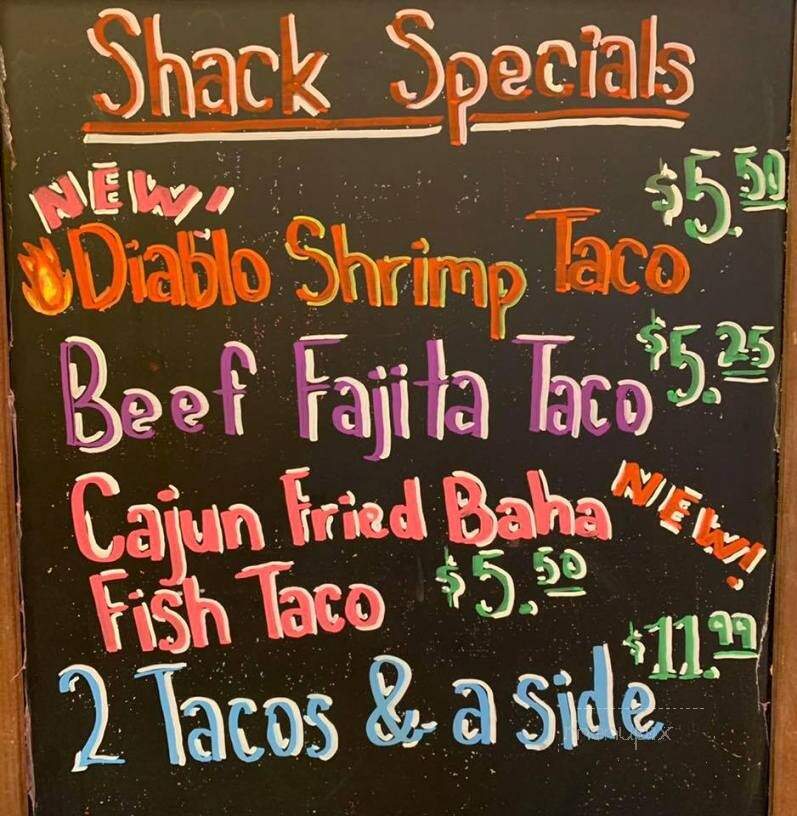 Shack Specials
NEW!
$5.50
Diablo Shrimp Taco
$5.25
Beef Fajita Taco
Cajun Fried Baha
NEW!
Fish Taco $5.50
$11.99
2 Tacos & a side
menupix